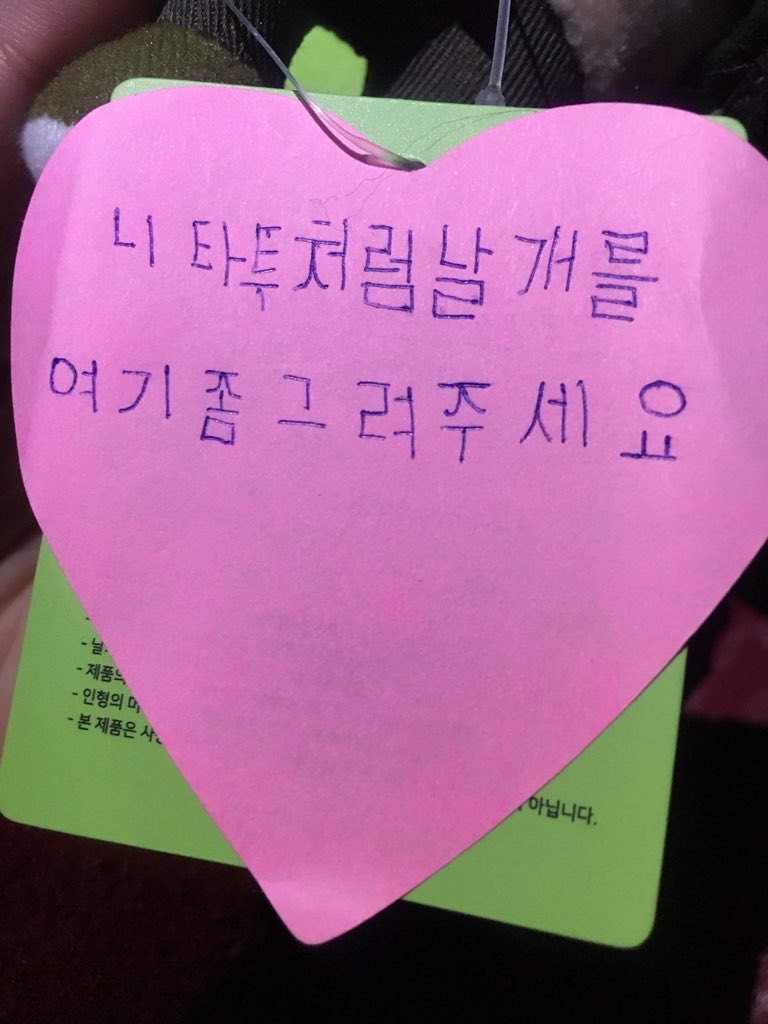 니 타투처럼 날개를
여기 좀 그려주세요
- 제품의
- 인형의
- 본 제품은
아닙니다.